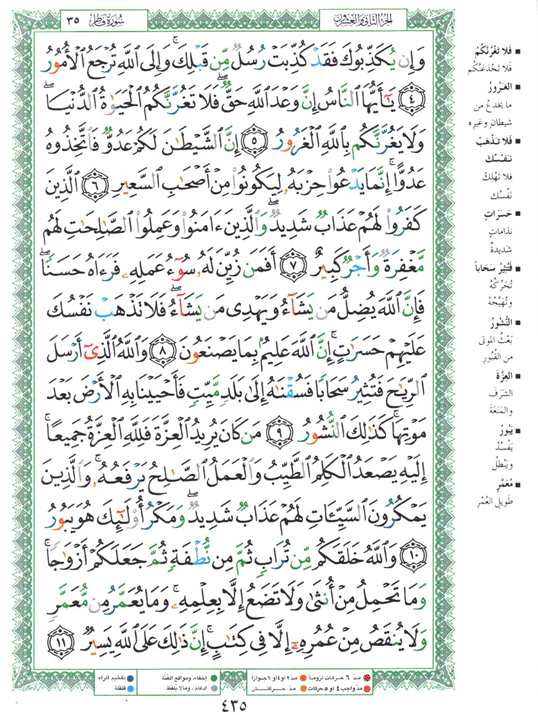 الجزء الثاني والعشرون
سورة فاطر ٣٥
وَإِن يُكَذِّبُوكَ فَقَدْ كُذِّبَتْ رُسُلٌ مِّن قَبْلِكَ ۚ وَإِلَى ٱللَّهِ تُرْجَعُ ٱلْأُمُورُ
٤ يَـٰٓأَيُّهَا ٱلنَّاسُ إِنَّ وَعْدَ ٱللَّهِ حَقٌّ ۖ فَلَا تَغُرَّنَّكُمُ ٱلْحَيَوٰةُ ٱلدُّنْيَا ۖ
وَلَا يَغُرَّنَّكُم بِٱللَّهِ ٱلْغَرُورُ ٥ إِنَّ ٱلشَّيْطَـٰنَ لَكُمْ عَدُوٌّ فَٱتَّخِذُوهُ
عَدُوًّا ۚ إِنَّمَا يَدْعُوا۟ حِزْبَهُۥ لِيَكُونُوا۟ مِنْ أَصْحَـٰبِ ٱلسَّعِيرِ ٦ ٱلَّذِينَ
كَفَرُوا۟ لَهُمْ عَذَابٌ شَدِيدٌ ۖ وَٱلَّذِينَ ءَامَنُوا۟ وَعَمِلُوا۟ ٱلصَّـٰلِحَـٰتِ لَهُم
مَّغْفِرَةٌ وَأَجْرٌ كَبِيرٌ ٧ أَفَمَن زُيِّنَ لَهُۥ سُوٓءُ عَمَلِهِۦ فَرَءَاهُ حَسَنًا ۖ
فَإِنَّ ٱللَّهَ يُضِلُّ مَن يَشَآءُ وَيَهْدِى مَن يَشَآءُ ۖ فَلَا تَذْهَبْ نَفْسُكَ
عَلَيْهِمْ حَسَرَٰتٍ ۚ إِنَّ ٱللَّهَ عَلِيمٌۢ بِمَا يَصْنَعُونَ ٨ وَٱللَّهُ ٱلَّذِىٓ أَرْسَلَ
ٱلرِّيَـٰحَ فَتُثِيرُ سَحَابًا فَسُقْنَـٰهُ إِلَىٰ بَلَدٍ مَّيِّتٍ فَأَحْيَيْنَا بِهِ ٱلْأَرْضَ بَعْدَ
مَوْتِهَا ۚ كَذَٰلِكَ ٱلنُّشُورُ ٩ مَن كَانَ يُرِيدُ ٱلْعِزَّةَ فَلِلَّهِ ٱلْعِزَّةُ جَمِيعًا ۚ
إِلَيْهِ يَصْعَدُ ٱلْكَلِمُ ٱلطَّيِّبُ وَٱلْعَمَلُ ٱلصَّـٰلِحُ يَرْفَعُهُۥ ۚ وَٱلَّذِينَ
يَمْكُرُونَ ٱلسَّيِّـَٔاتِ لَهُمْ عَذَابٌ شَدِيدٌ ۖ وَمَكْرُ أُو۟لَـٰٓئِكَ هُوَ يَبُورُ
١٠ وَٱللَّهُ خَلَقَكُم مِّن تُرَابٍ ثُمَّ مِن نُّطْفَةٍ ثُمَّ جَعَلَكُمْ أَزْوَٰجًا ۚ
وَمَا تَحْمِلُ مِنْ أُنثَىٰ وَلَا تَضَعُ إِلَّا بِعِلْمِهِۦ ۚ وَمَا يُعَمَّرُ مِن مُّعَمَّرٍ
وَلَا يُنقَصُ مِنْ عُمُرِهِۦٓ إِلَّا فِى كِتَـٰبٍ ۚ إِنَّ ذَٰلِكَ عَلَى ٱللَّهِ يَسِيرٌ ١١
■ فَلا تَغُرَّنَّكُمُ
فلا تَخْدَعَنَّكُم
■ الغَرُورُ
ما يخدع من
شيطان وغيره
■ فَلا تَذْهَبْ
نَفْسُكَ
فلا تَهْلِكْ
نَفْسُك
■ حَسَرَاتٍ
ندامات
شديدةً
■ فَتُثِيرُ سَحَاباً
تُحَرِّكُهُ
وتُهَيِّجُهُ
■ النُّشُورُ
بَعْثُ الموتى
من القُبُورِ
■ العِزَّةَ
الشَّرَف
والمَنَعَة
■ يَبُورُ
يَفْسُدُ
ويَبْطُلُ
■ مُعَمَّرٍ
طويل العُمُر
مدّ ٦ حركات لزوماً
مدّ ٢ أو ٤ أو ٦ جوازاً
إخفاء، ومواقع الغُنَّة
تفخيم الراء
مدّ واجب ٤ أو ٥ حركات
مدّ حركتان
ادغام، ومالا يُلفظ
قلقلة
٤٣٥